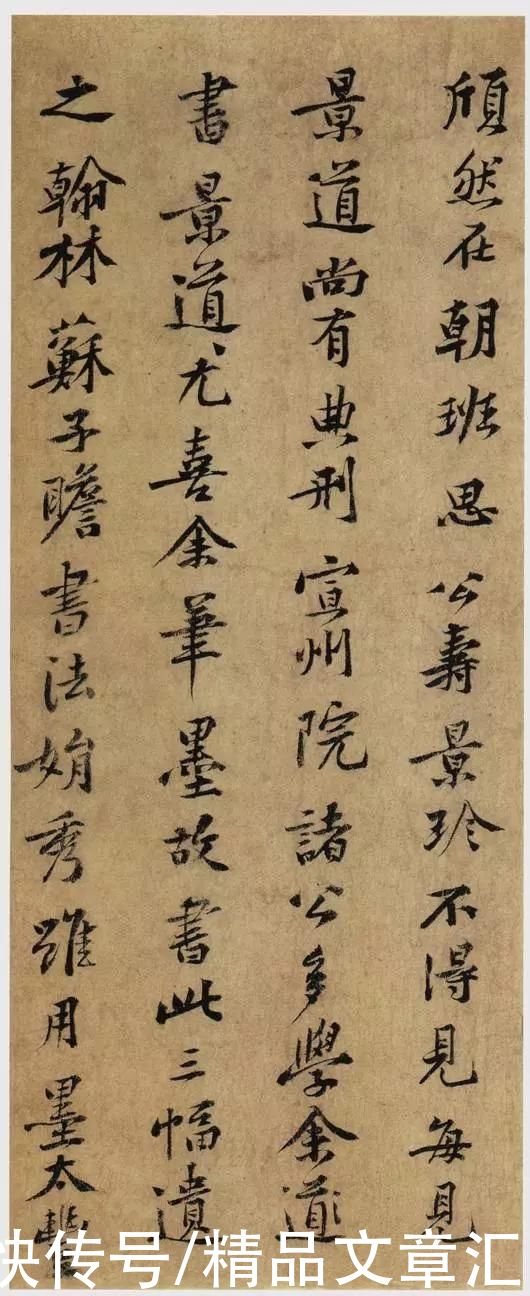 頎然在朝班思公壽景珍不得見每見
景道尚有典刑宣州院諸公多學余道
書景道尤喜余筆墨故書此三幅遺
之翰林蘇子瞻書法娟秀雖用墨太豐
快传号/精品文章汇